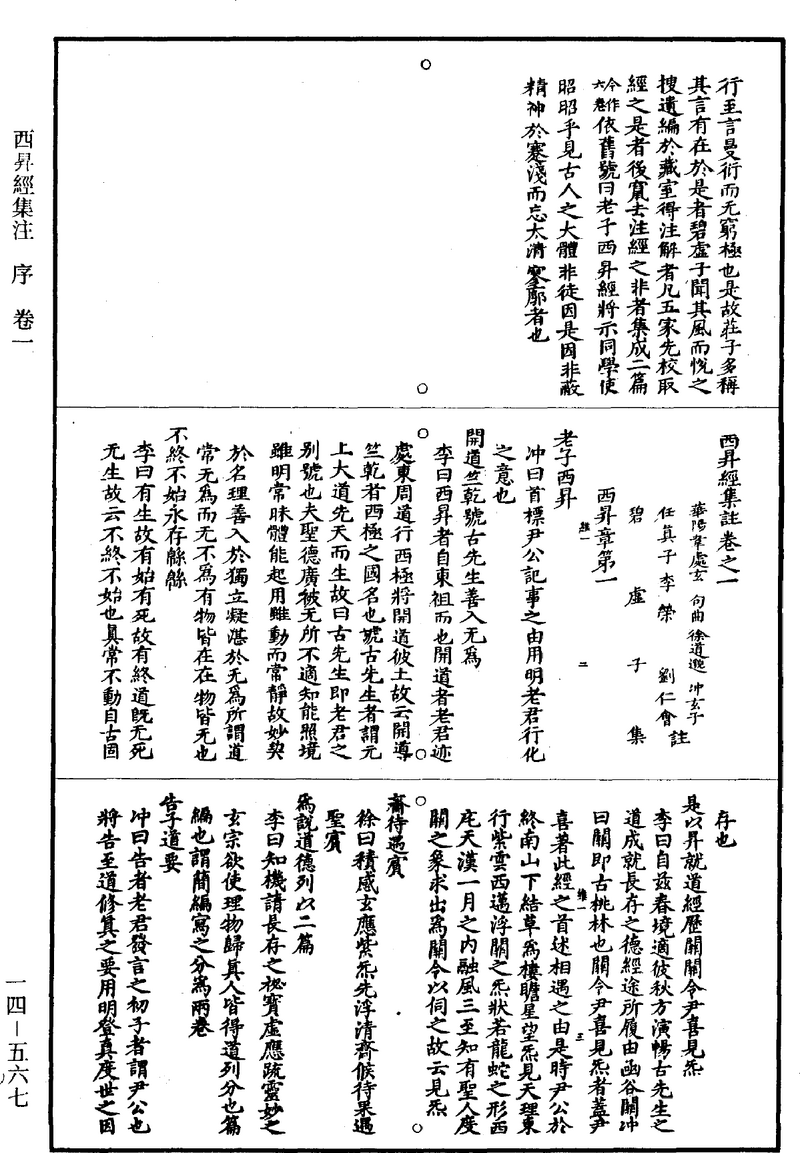 西昇經集注 序 卷一
一四－五六七
行至言曼衍而无窮極也是故莊子多稱
其言有在於是者碧虛子聞其風而悅之
搜遺編於藏室得注解者凡五家先校取
經之是者後竄去注經之非者集成二篇
今作六卷依舊號曰老子西昇經將示同學使
昭昭乎見古人之大體非徒因是因非蔽
精神於蹇淺而忘太清寥廓者也
西昇經集註卷之一
華陽韋處玄 句曲徐道邈 冲玄子
任真子李榮 劉仁會 註
碧虛子集
西昇章第一
維一 二
老子西昇
冲曰首標尹公記事之由用明老君行化
之意也
開道竺乾號古先生善入无爲
李曰西昇者自東徂而也開道者老君迹
處東周道行西極將開道彼土故云開導
竺乾者西極之國名也號古先生者謂元
上大道先天而生故曰古先生即老君之
别號也夫聖德廣被无所不適知能照境
雖明常昧體能起用雖動而常靜故妙契
於名理善入於獨立凝湛於无爲所謂道
常无爲而无不爲有物皆在在物皆无也
不終不始永存綿綿
李曰有生故有始有死故有終道旣无死
无生故云不終不始也真常不動自古固
存也
是以昇就道經歷關關令尹喜見炁
李曰自兹春境適彼秋方演暢古先生之
道成就長存之德經途所履由函谷關冲
曰關即古桃林也關令尹喜見炁者蓋尹
維一 三
喜著此經之首述相遇之由是時尹公於
終南山下結草爲樓瞻星望炁見天理東
行紫雲西邁浮關之炁狀若龍蛇之形西
度天漢一月之内融風三至知有聖人度
關之象求出爲關令以伺之故云見炁
齋待遇賓
徐曰積感玄應紫炁先浮清齋候待果遇
聖賓
爲說道德列以二篇
李曰知機請長存之祕寶虛應疏靈妙之
玄宗欲使理物歸真人皆得道列分也篇
編也謂簡編寫之分爲兩卷
告子道要
冲曰告者老君發言之初子者謂尹公也
將告至道修真之要用明登真度世之因